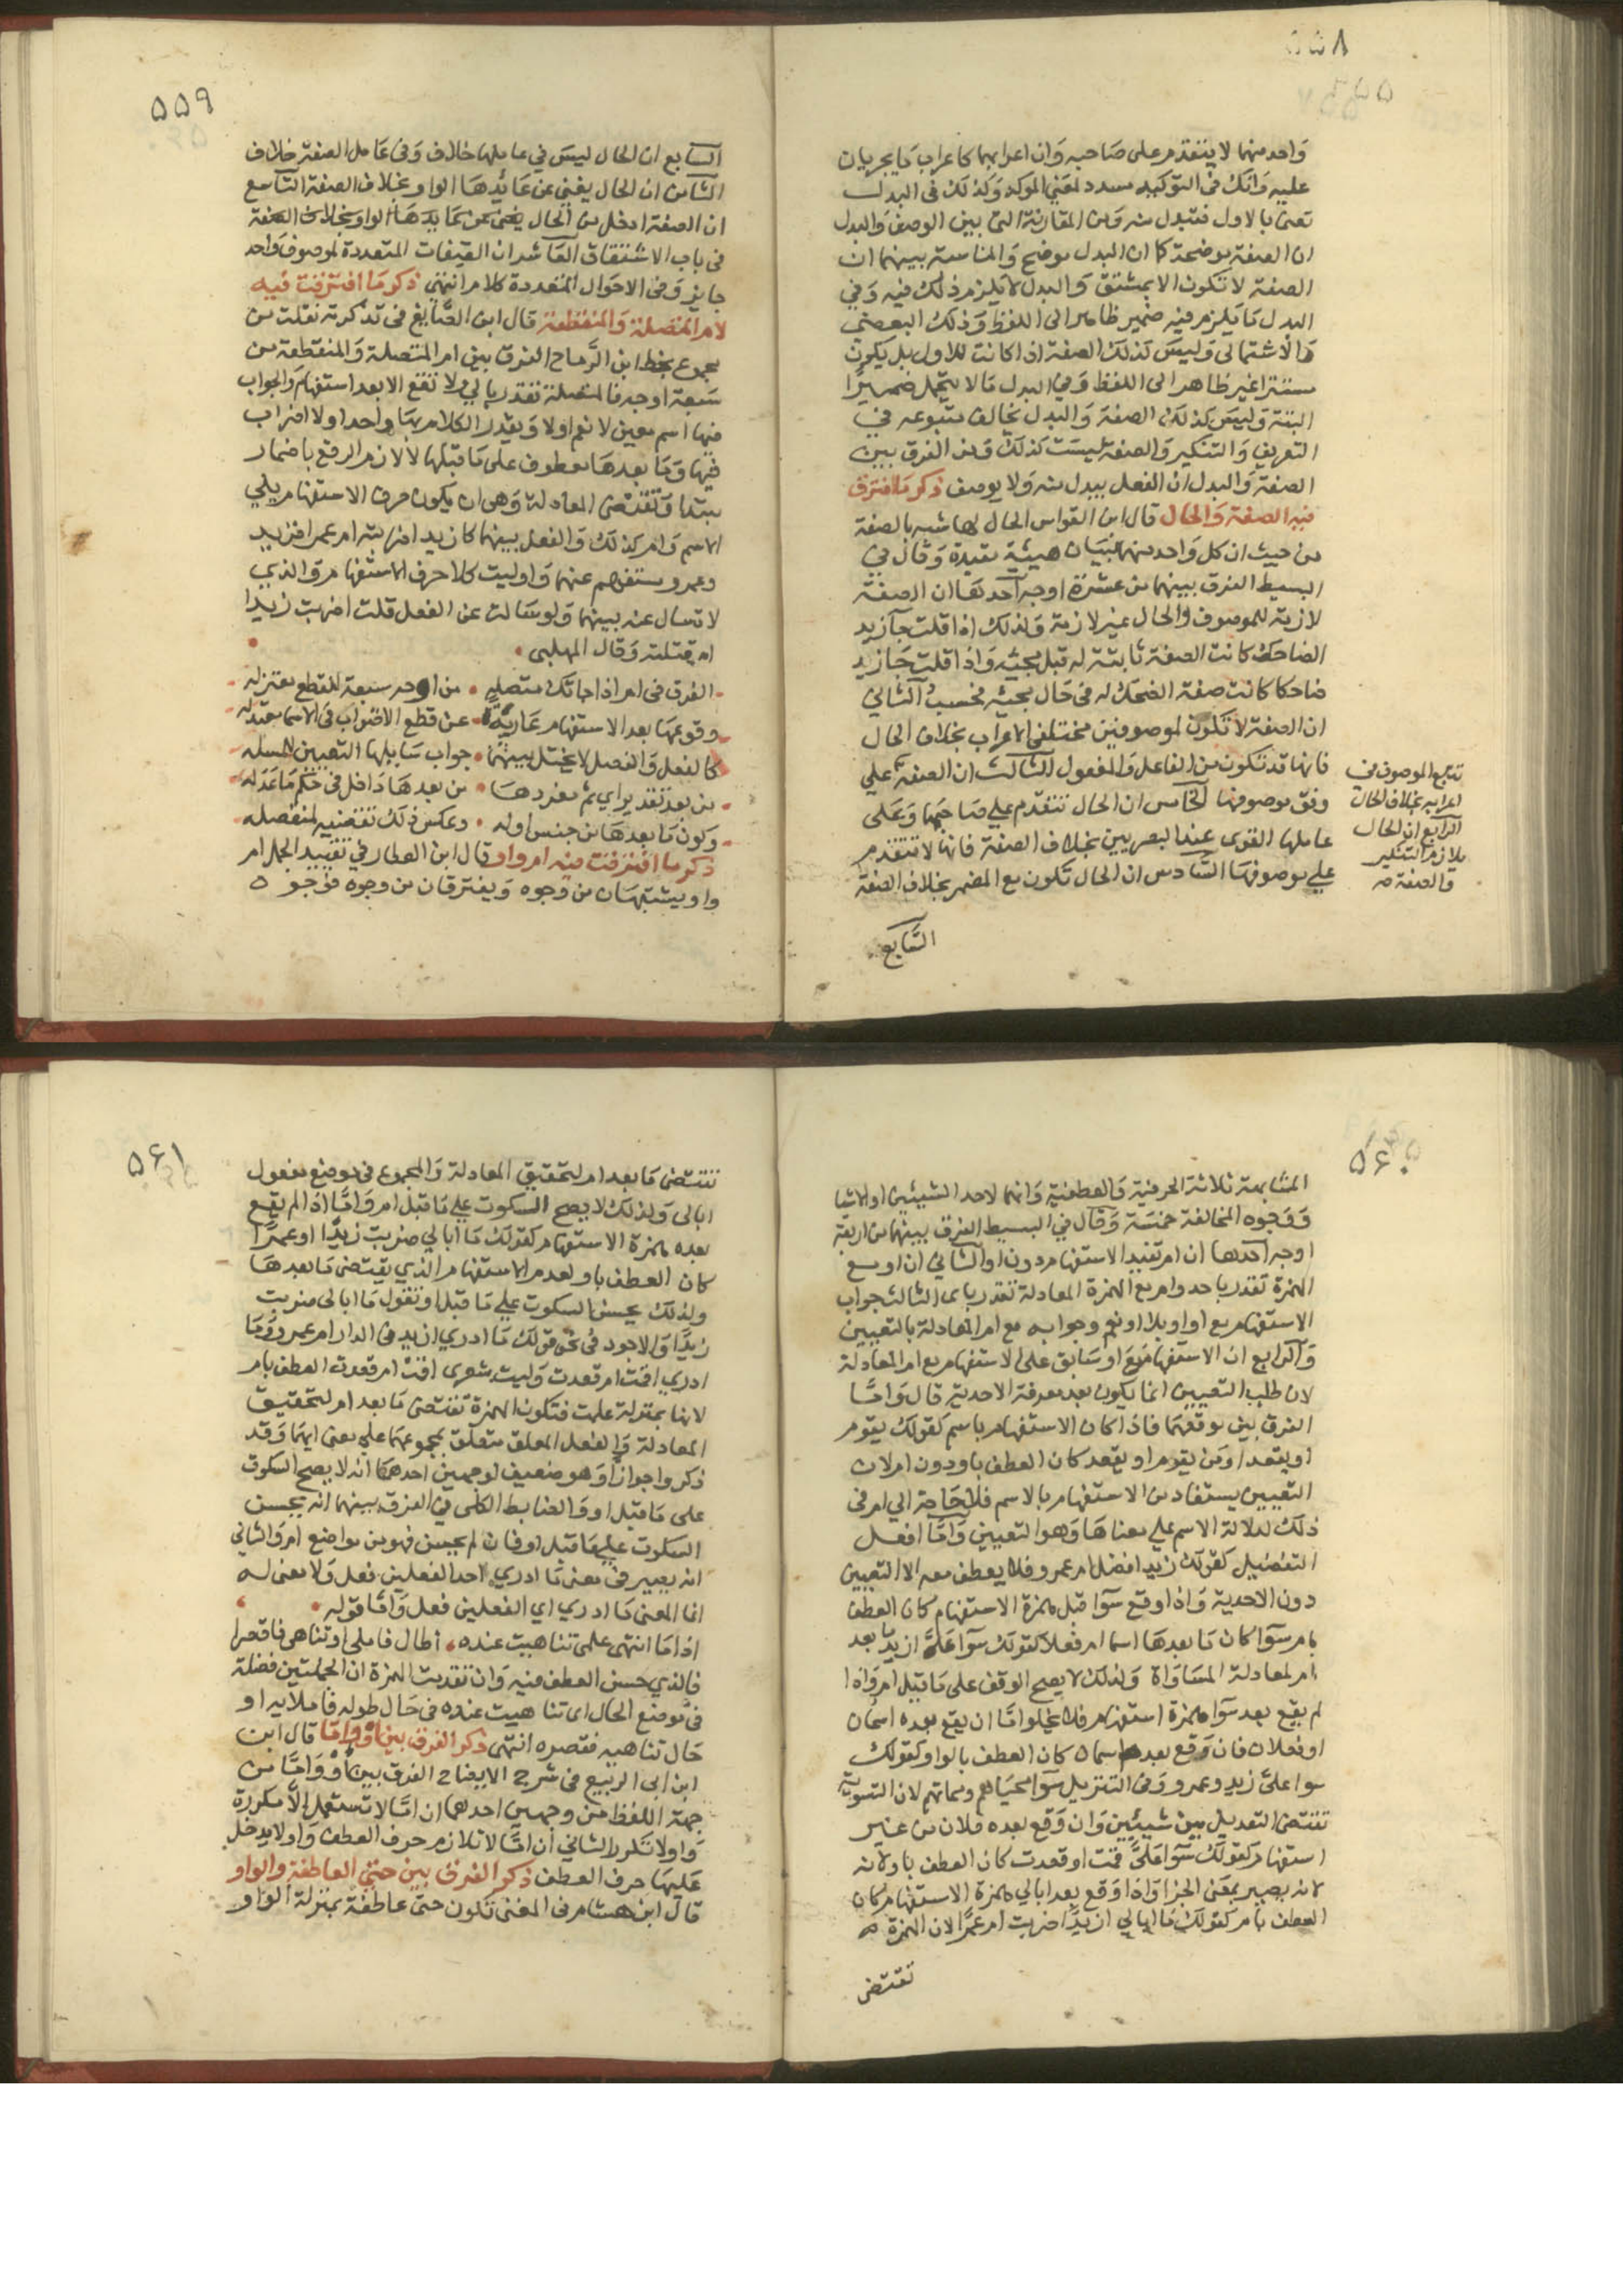 ٥٥٨
واحد منهما لا يتقدم على صاحبه وان اعرابهما كاعراب ما يجريان
عليه وانك في التوكيد مسدد لمعنى الموكد وكذلك في البدل
تعنى بالاول فتبدل منه ومن المقارنة التى بين الوصف والبدل
ان الصفة موضحة كما ان البدل موضح والمناسبة بينهما ان
الصفة لا تكون الا بمشتق والبدل لا يلزم ذلك فيه وفي
البدل ما يلزم فيه ضمير ظاهر الى اللفظ وذلك البعضي
والاشتمالى وليس كذلك الصفة اذا كانت للاول بل يكون
مستترا غير ظاهر الى اللفظ وفي البدل ما لا يتحمل ضميرا
البتة وليس كذلك الصفة والبدل يخالف متبوعه في
التعريف والتنكير والصفة ليست كذلك ومن الفرق بين
الصفة والبدل ان الفعل يبدل منه ولا يوصف ذكر ما افترق
فيه الصفة والحال قال ابن القواس الحال لها شبه بالصفة
من حيث ان كل واحد منهما لبيان هيئة مقيدة وقال في
البسيط الفرق بينهما من عشرة اوجه احدها ان الصفة
لازمة للموصوف والحال غير لازمة ولذلك اذا قلت جآ زيد
الضاحك كانت الصفة ثابتة له قبل مجيئه واذا قلت جا زيد
ضاحكا كانت صفة الضحك له في حال مجيئه فحسب الثاني
ان الصفة لا تكون لموصوفين مختلفى الاعراب بخلاف الحال
فانها قد تكون من الفاعل والمفعول الثالث ان الصفة على
وفق موصوفها الخامس ان الحال تتقدم على صاحبها وعلى
عاملها القوى عند البصريين بخلاف الصفة فانها لا تتقدم
على موصوفها السادس ان الحال تكون مع المضمر بخلاف الصفة
تتبع الموصوف في
اعرابه بخلاف الحال
الرابع ان الحال
يلازم التنكير
والصفة صه
السابع
٥٥٩
السابع ان الحال ليس في عاملها خلاف وفى عامل الصفة خلاف
الثامن ان الحال يغني عن عائدها الواو بخلاف الصفة التاسع
ان الصفة ادخل من الحال
فى باب الاشتقاق العاشر ان الصفات المتعددة لموصوف واحد
جايز وفى الاحوال المتعددة كلام انتهى ذكر ما افترقت فيه
ام المتصلة والمنقطعة قال ابن الصايغ فى تذكرته نقلت من
مجموع بخط ابن الرماح الفرق بين ام المتصلة والمنقطعة من
سبعة اوجه فالمتصلة تقدر باي ولا تقع الا بعد استفهام والجواب
فيها اسم معين لا نعم اولا ويقدر الكلام بها واحدا ولا اضراب
فيها وما بعدها معطوف على ما قبلها لا لازم الرفع باضمار
مبتدا وتقتضى المعادلة وهى ان يكون حرف الاستفهام يلي
الاسم وام كذلك والفعل بينهما كازيد اضربته ام عمر افزيد
وعمرو مستفهم عنهما واوليت كلا حرف الاستفهام والذي
لا تسال عنه بينهما ولو سالت عن الفعل قلت اضربت زيدا
ام قتلته وقال المهلبى
الفرق فى ام اذا جاتك متصله من اوجه سبعة للقطع معتزله
وقوعها بعد الاستفهام عاريةً عن قطع الاضراب فى الاسما معتدله
كالفعل والفصل لا يختل بينهما جواب سايلها التعيين للمسله
من بعد تقدير اي ثم مفردها من بعدها داخل فى حكم ما عدله
وكون ما بعدها من جنس اوله وعكس ذلك تقضيه لمنفصله
ذكر ما افترقت فيه ام واو قال ابن العطار في تقييد الجمل ام
واو يشتبهان من وجوه ويفترقان من وجوه فوجوه
٥٦٠
المشابهة ثلاثة الحرفية والعطفية وانهما لاحد الشيئين او الاشيا
ووجوه المخالفة خمسة وقال في البسيط الفرق بينهما من اربعة
اوجه احدها ان ام تفيد الاستفهام دون او والثاني ان او مع
الهمزة تقدر باحد وام مع الهمزة المعادلة تقدر باى الثالث جواب
الاستفهام مع او او بلا او نعم وجوابه مع ام المعادلة بالتعيين
والرابع ان الاستفهام مع او سابق على الاستفهام مع ام المعادلة
لان طلب التعيين انما يكون بعد معرفة الاحدية قال واما
الفرق بين موقعهما فاذا كان الاستفهام باسم كقولك يقوم
او يقعد او من يقوم او يقعد كان العطف باو دون ام لان
التعيين يستفاد من الاستفهام بالاسم فلا حاجة الي ام فى
ذلك لدلالة الاسم على معناها وهو التعيين واما افعل
التفضيل كقولك زيد افضل ام عمرو فلا يعطف معه الا التعيين
دون الاحدية واذا وقع سوا قبل همزة الاستفهام كان العطف
بام سوا كان ما بعدها اسما ام فعلا كقولك سوا على ازيد ما بعد
ام لمعادلة المساواة ولذلك لا يصح الوقف على ما قبل ام واذا
لم يقع بعد سوا همزة استفهام فلا يخلوا اما ان يقع بعده اسمان
او فعلان فان وقع بعده اسمان كان العطف بالواو كقولك
سوا على زيد وعمرو وفى التنزيل سوا محياهم ومماتهم لان التسوية
تقتضى التعديل بين شيئين وان وقع بعده فعلان من غير
استفهام كقولك سوا على قمت او قعدت كان العطف باو لانه
لانه يصير بمعنى الجزا واذا وقع بعد ابالي همزة الاستفهام كان
العطف بام كقولك ما ابالي ازيدا ضربت ام عمرا لان الهمزة
تقتضى
٥٦١
تقتضى ما بعد ام لتحقيق المعادلة والمجموع فى موضع مفعول
ابالى ولذلك لا يصح السكوت على ما قبل ام واما اذا لم يقع
بعده همزة الاستفهام كقولك ما ابالي ضربت زيدا او عمرا
كان العطف باو لعدم الاستفهام الذي يقتضى ما بعدها
ولذلك يحسن السكوت على ما قبل او تقول ما ابالى ضربت
زيدا والاجود في نحو قولك ما ادري ازيد فى الدار ام عمرو وما
ادري اقمت ام قعدت وليت شعري اقمت ام قعدت العطف بام
لانها بمنزلة علمت فتكون الهمزة تقتضى ما بعد ام لتحقيق
المعادلة والفعل المعلق متعلق بمجموعهما على معنى ايهما وقد
ذكروا جواز او وهو ضعيف لوجهين احدهما انه لا يصح السكوت
على ما قبل او والضابط الكلى في الفرق بينهما انه يحسن
السكوت على ما قبل او فان لم يحسن فهو من مواضع ام والثاني
انه يصير فى معنى ما ادري احد الفعلين فعل ولا معنى له
انما المعنى ما ادري اي الفعلين فعل واما قوله
اذا ما انتهى علمى تناهيت عنده اطال فاملى او تناهى فاقصرا
فالذي حسن العطف فيه وان تقدمت الهمزة ان الجملتين فضلة
فى موضع الحال اى تناهيت عنده فى حال طوله فاملايه او
حال تناهيه فقصره انتهى ذكر الفرق بين او واما قال ابن
ابن ابى الربيع فى شرح الايضاح الفرق بين او واما من
جهة اللفظ من وجهين احدهما ان اما لا تستعمل الا مكررة
واو لا تكرر الثاني ان اما لا تلازم حرف العطف واو لا يدخل
عليها حرف العطف ذكر الفرق بين حتى العاطفة والواو
قال ابن هشام فى المغنى تكون حتى عاطفة بمنزلة الواو